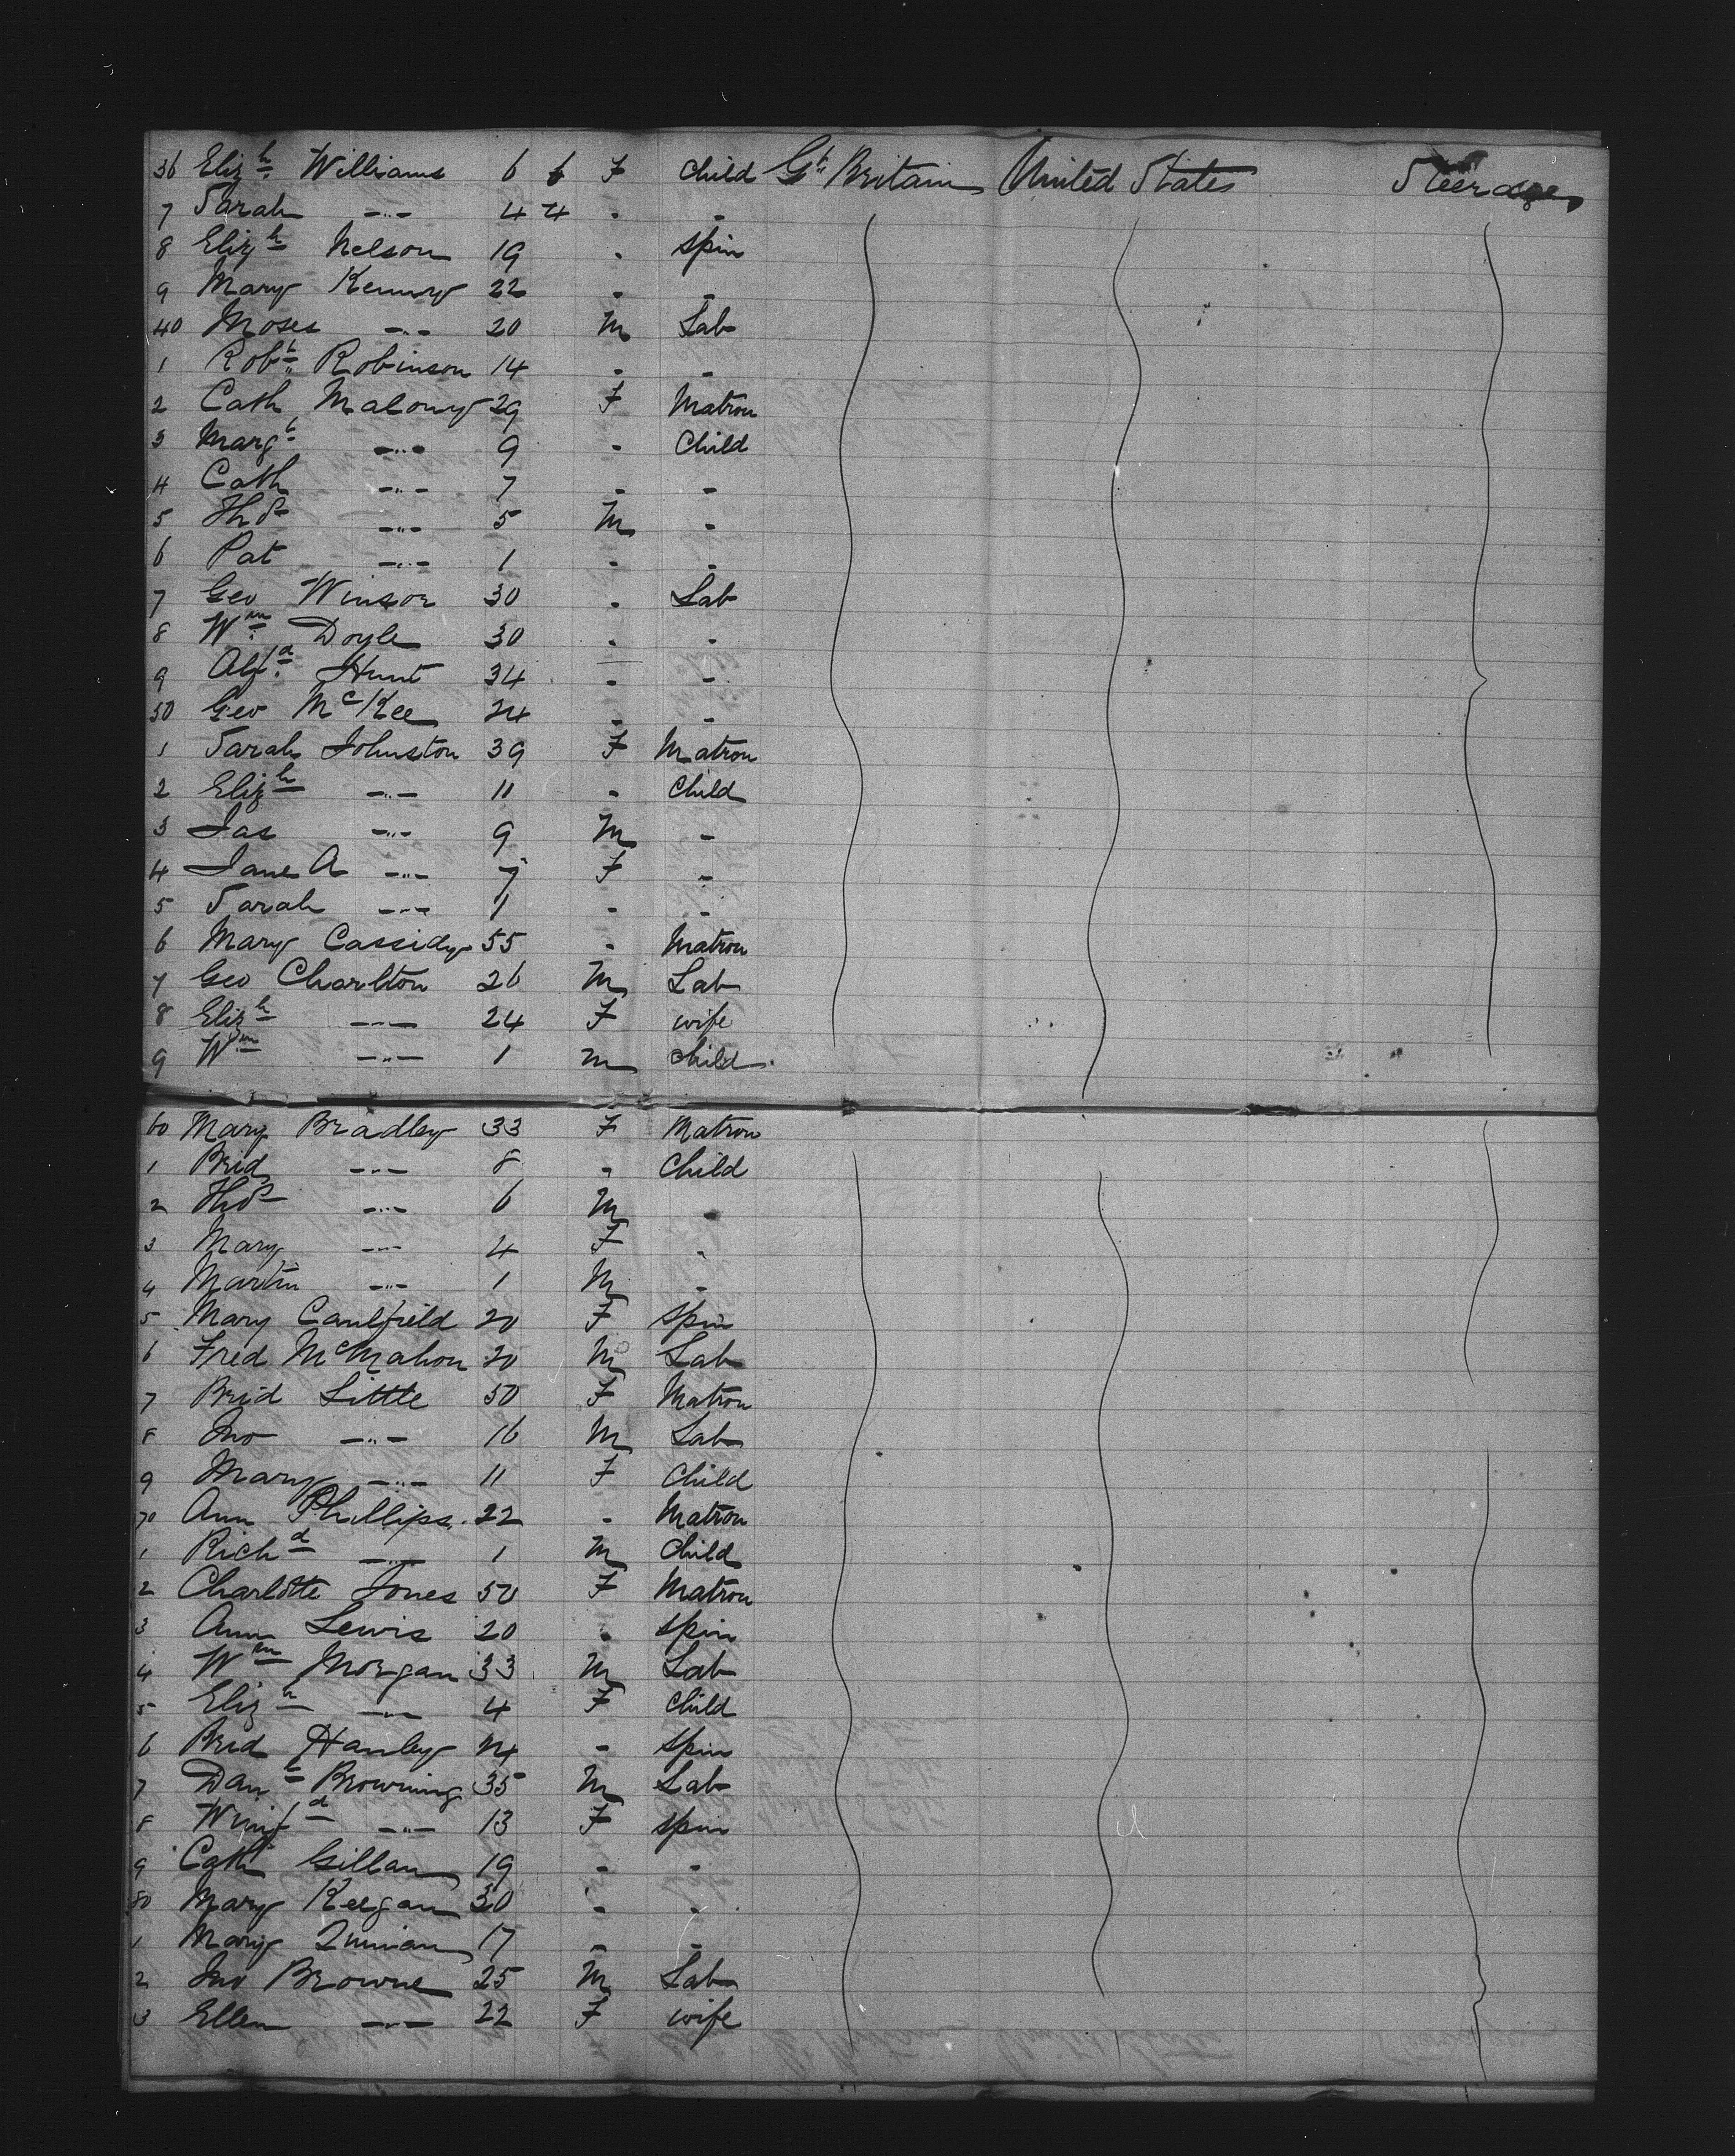 36 Eliz^h. Williams 6 6 F Child G^t Britain United States Steerage
7 Sarah -"- 4 4 - -
8 Eliz^h Nelson 19 - Spin
9 Mary Kenny 22 - -
40 Moses -"- 20 M Lab
1 Rob^t Robinson 14 - -
2 Cath Malony 29 F Matron
3 Marg^t -"- 9 - Child
4 Cath -"- 7 - -
5 Tho^s -"- 5 M -
6 Pat -"- 1 - -
7 Geo Winsor 30 - Lab
8 W^m Doyle 30 - -
9 Alf^d. Hunt 34 - -
50 Geo M^cKee 24 - -
1 Sarah Johnston 39 F Matron
2 Eliz^h -"- 11 - Child
3 Jas -"- 9 M -
4 Jane A -"- 7 F -
5 Sarah -"- 1 - -
6 Mary Cassidy 55 - Matron
7 Geo Charlton 26 M Lab
8 Eliz^h -"- 24 F wife
9 W^m -"- 1 M child
60 Mary Bradley 33 F Matron
1 Brid -"- 8 - Child
2 Tho^s -"- 6 M -
3 Mary -"- 4 F -
4 Martin -"- 1 M -
5 Mary Caulfield 20 F Spin
6 Fred M^cMahon 20 M Lab
7 Brid Little 50 F Matron
8 Jno -"- 16 M Lab
9 Mary -"- 11 F Child
70 Ann Phillips 22 - Matron
1 Rich^d -"- 1 M Child
2 Charlotte Jones 50 F Matron
3 Ann Lewis 20 - Spin
4 W^m Morgan 33 M Lab
5 Eliz^h -"- 4 F Child
6 Brid Hanley 24 - Spin
7 Dan^l Browning 35 M Lab
8 Winif^d -"- 13 F Spin
9 Cath Gillan 19 - -
80 Mary Keegan 30 - -
1 Mary Quinian 17 - -
2 Jno Browne 25 M Lab
3 Ellen -"- 22 F wife